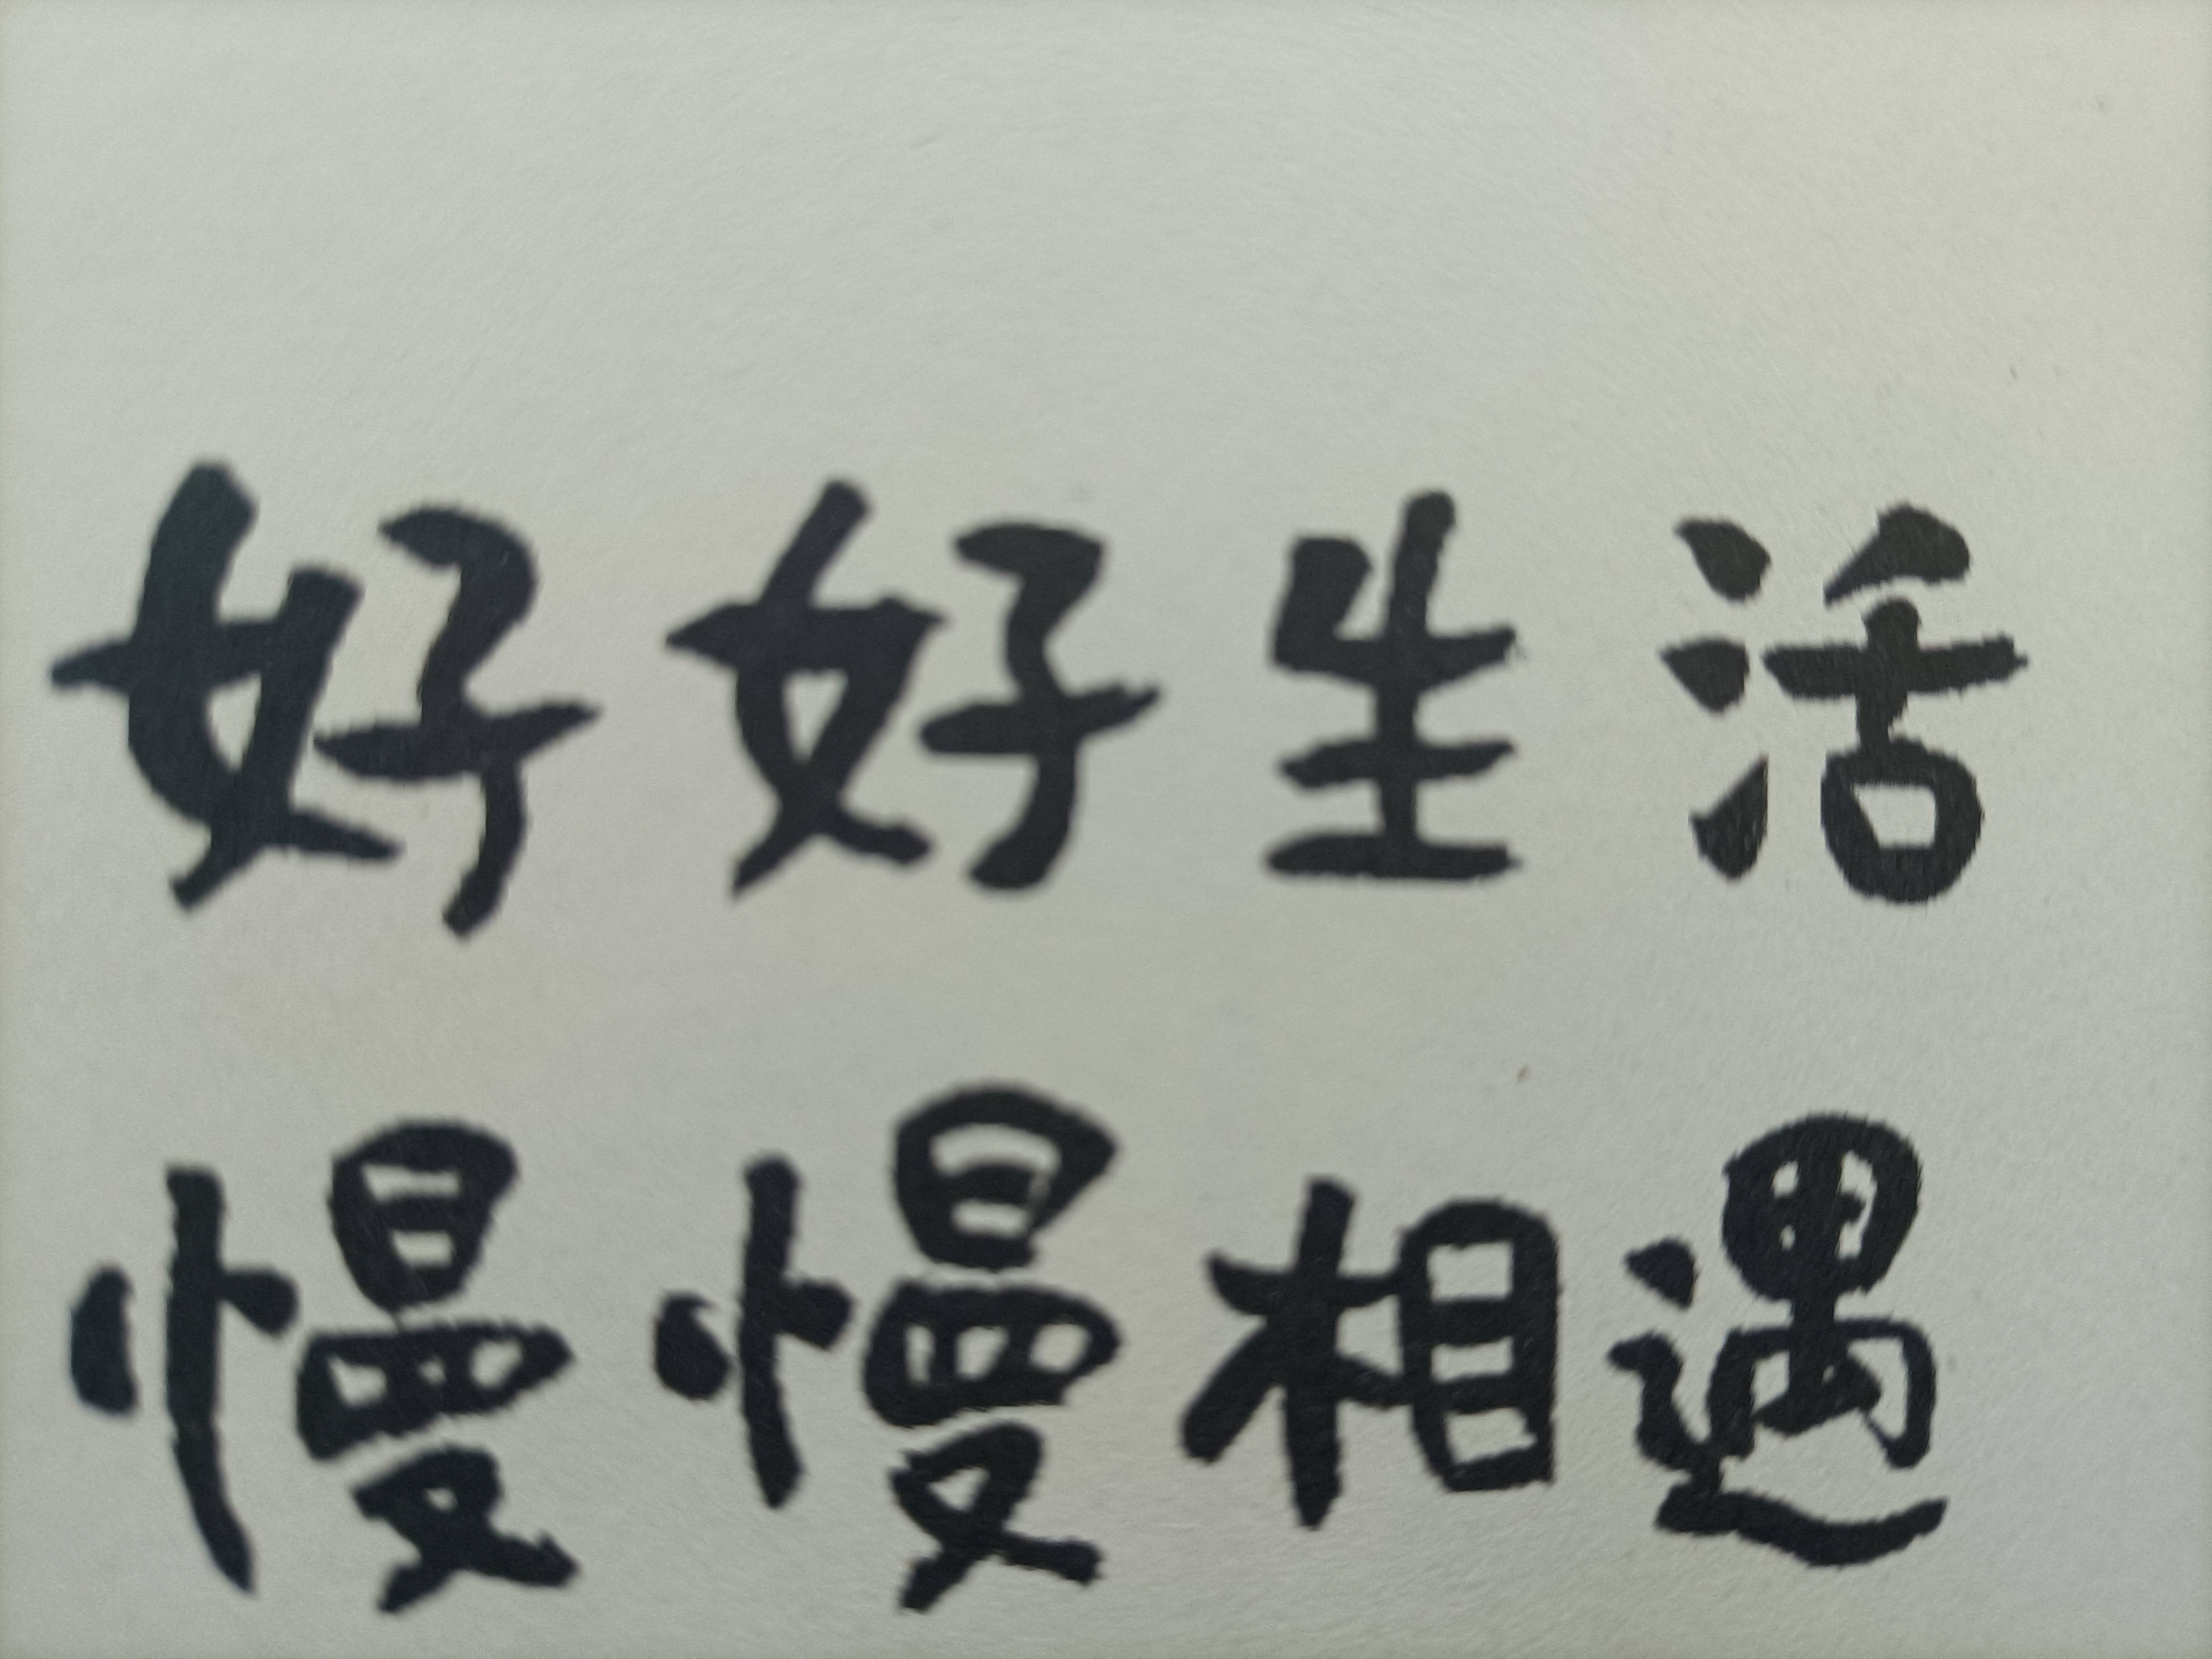 好好生活
慢慢相遇